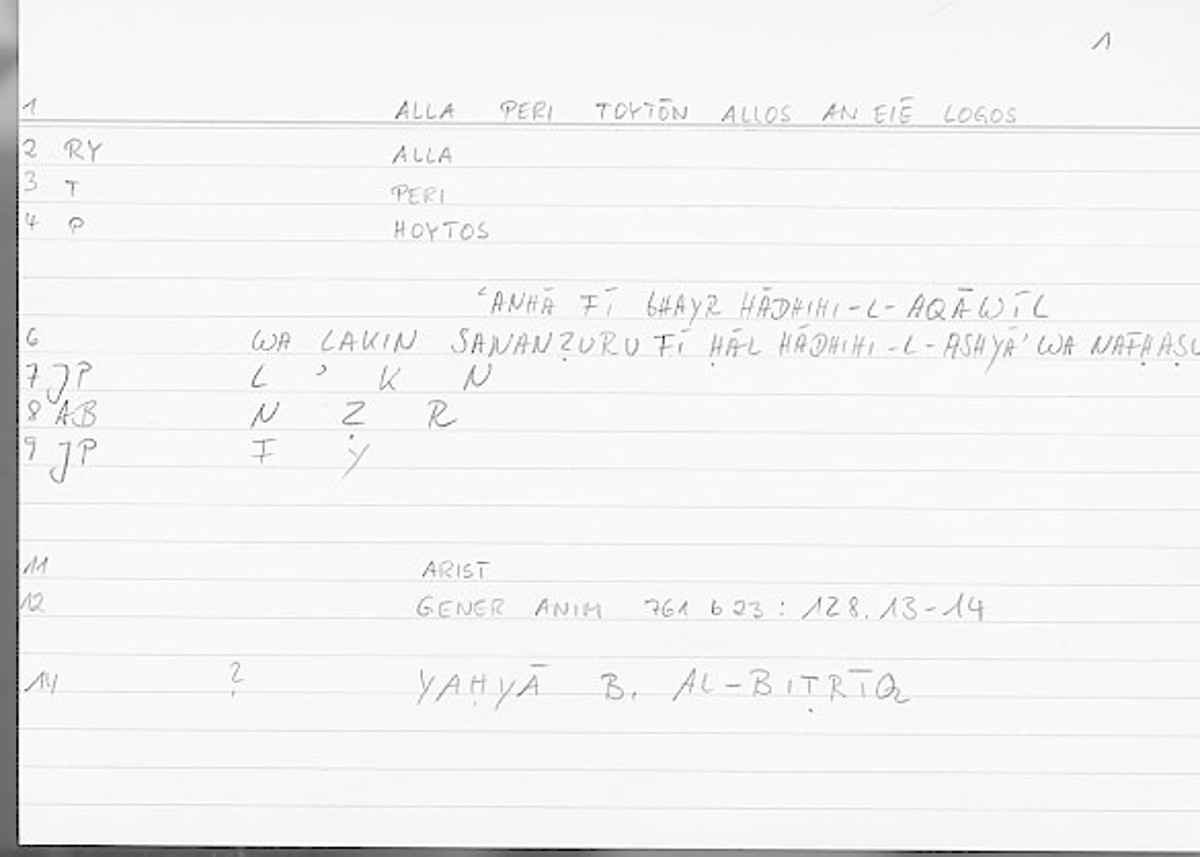 1
1 ALLA PERI TOYTŌN ALLOS AN EIĒ LOGOS
2 RY ALLA
3 T PERI
4 P HOYTOS
ʿANHĀ FĪ GHAYR HĀDHIHI-L-AQĀWĪL
6 WA LAKIN SANANẒURU FĪ ḤĀL HĀDHIHI-L-ASHYĀʾ WA NAFḤAṢU
7 JP L ʾ K N
8 AB N Ẓ R
9 JP F Y
11 ARIST
12 GENER ANIM 761 b 23 : 128.13-14
14 ? YAḤYĀ B. AL-BIṬRĪQ